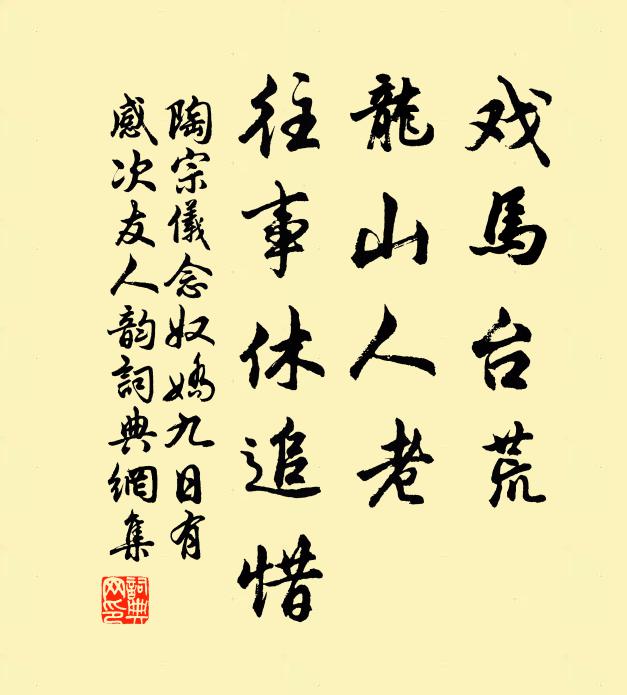 戏馬台荒
龍山人老
往事休追惜
陶宗儀念奴嬌九日有
感次友人韵詞典網集
詞典
网印